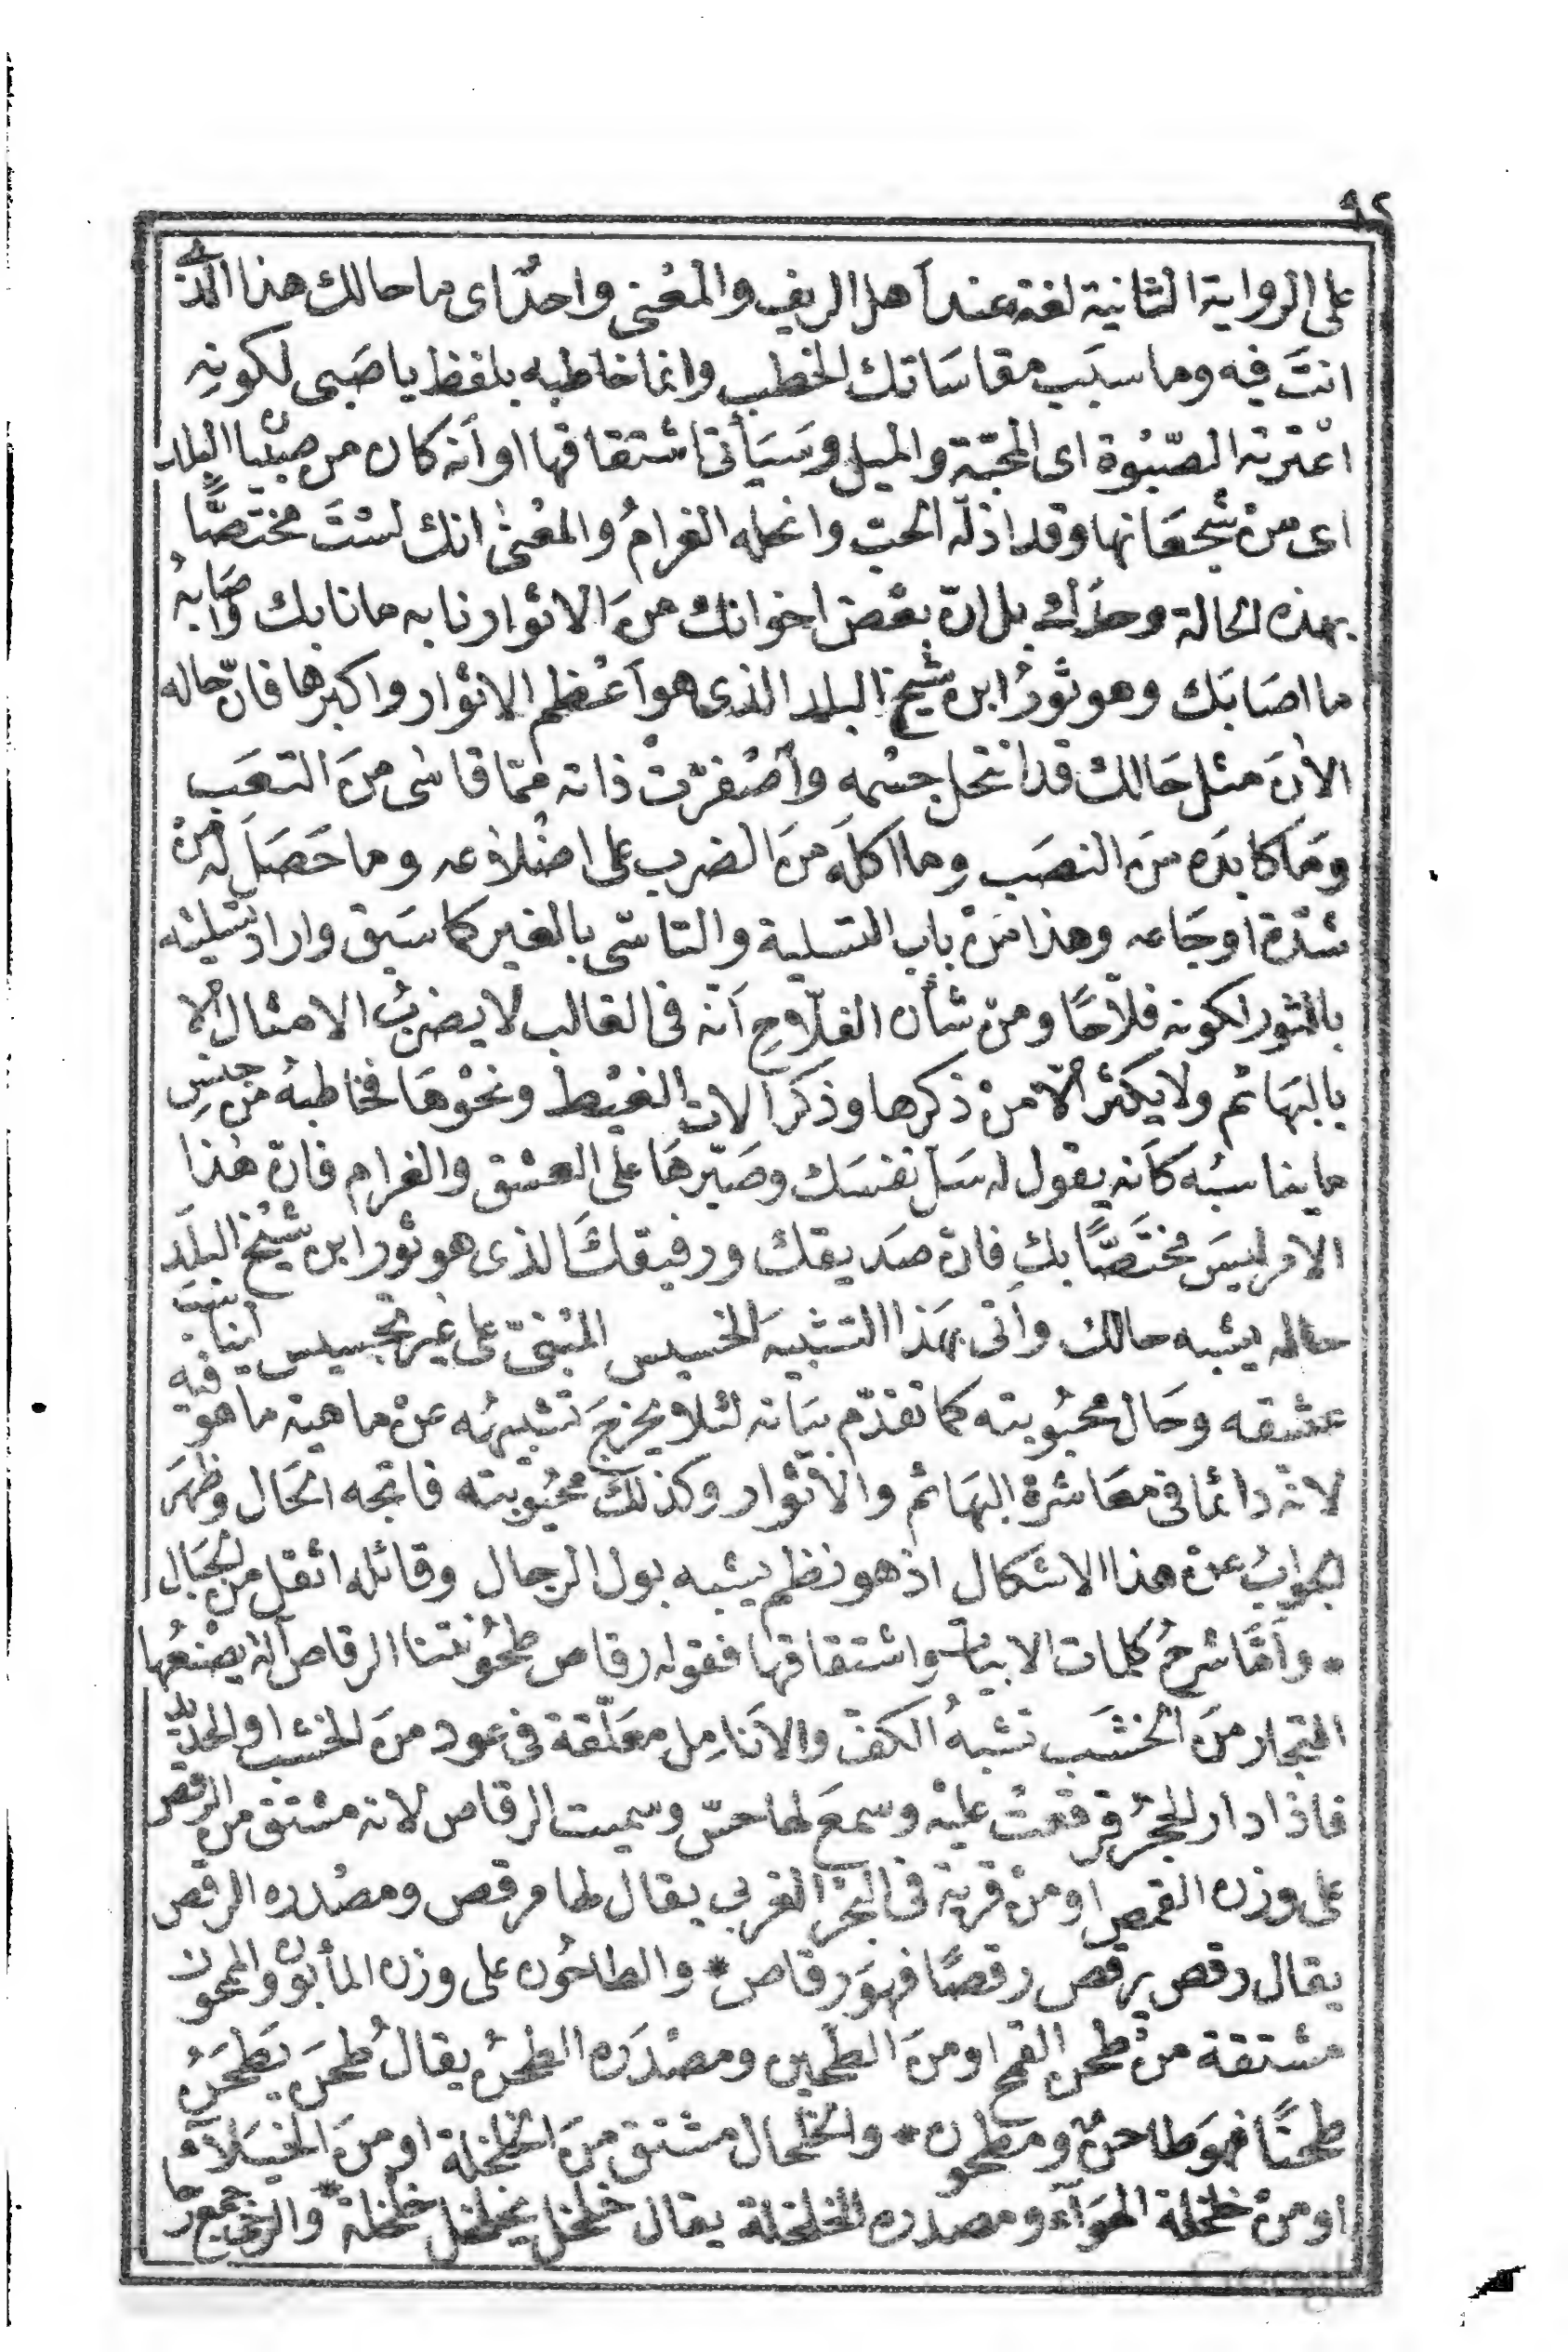 ٩٢
على الرواية الثانية لغة عند أهل الريف والمعْنى واحدٌ اى ما حالك هذا الذى
انتَ فيه وما سبَب مقاسَاتك الخطب وانما خاطبه بلفظ يا صَبى لكونِه
اعْترته الصّبْوة اى المحبّة والميل وسَيَأتى اشتقاقها او أنه كان من صبيان البلد
اى منْ شجعَانها وقد اذلّه الحبّ وانحله الغرامُ والمعْنى انك لسْتَ مختصًّا
بهذه الحالة وحدَك بل انّ بعْض اخوانك منَ الاثوار نابه ما نابك واصَابهُ
ما اصَابَك وهو ثورُ ابن شيخ البلد الذى هو أعْظم الاثوار واكبرها فانّ حاله
الآنَ مثل حَالك قد انتحل جسْمه وأصْفرّتْ ذاته ممّا قاسَى منَ التعَب
وَما كابدَه منَ النصَب وما اكلَه منَ الضرب على اضْلاعه وما حَصَلَ له منْ
شدّة اوجَاعه وهذا منْ باب التسلية والتاسّى بالغير كما سَبق واراد تسْليته
بالثور لكونه فلاّحًا ومنْ شأن الفلاّحِ أنّه فى الغالب لا يضربُ الامثال الا
بالبهَائم ولا يكثر الاّ منْ ذكرها وذكر آلات الغيْط ونحْوهَا فخاطبهُ منْ جنسِ
ما يناسبُه كأنه يقول له سَل نفسَك وصَبّرهَا على العشق والغرام فانّ هٰذا
الامر ليسَ مختَصًّا بك فان صَديقك ورفيقكَ الذى هو ثور ابن شيْخ البلَد
حاله يشبه حالك وأتى بهَذا التشبيه الخسيس المبْنىّ على غير تجْسيس ليناسبَ
عشقه وحَال محْبُوبته كما تقدّم بيَانه لئلا يخرجَ تشبيهُه عنْ ماهية ما هو فيه
لانه دائما فى معَاشرة البهَائم والأثْوار وكذلكَ محْبُوبته فاتجه الحَال وظهَرَ
جوابُ عنْ هذا الاشكال اذ هو نظم يشبه بول الرجال وقائله اثقل من الجبَال
* وأمَّا شرحُ كلمات الابيات واشتقاقها فقوله رقاص طحُونتنا الرقاص آلة يصْنعُها
النجار منَ الخشَب تشبهُ الكفّ والانَامِل معَلّقة فى عود منَ الخشب او الحديد
فاذا دار الحجَر قرقعتْ عليْه وسمعَ لها حسّ وسميت الرقاص لانه مشتق من الرقص
على وزن القمص او منْ قرية فى البحْر الغربى يقال لها مرقص ومصْدره الرقص
يقال رقص يرقص رقصًا فهوَ رقاص * والطاحُون على وزن المأبُون والمجون
مشتقة منْ طحن القمح او منَ الطّحين ومصْدَره الطحْنُ يقالُ طحَنَ يَطحَنُ
طحنًا فهوَ طاحنٌ ومطحون * والخلْخال مشتق منَ الخلْخلة او منَ الخيَلآء
او منْ خلخلة الهوَآء ومصدره الخلخلة يقال خلخل يخلخل خلخلة *